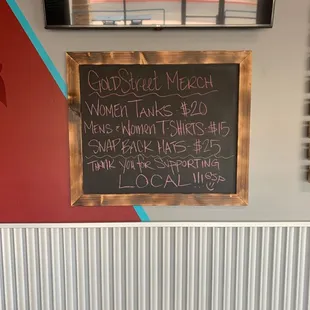 GOLDSTREET MERCH
WOMEN TANKS $20
MENS & WOMEN T SHIRTS $15
SNAP BACK HATS $25
THANK YOU FOR SUPPORTING
LOCAL!!!